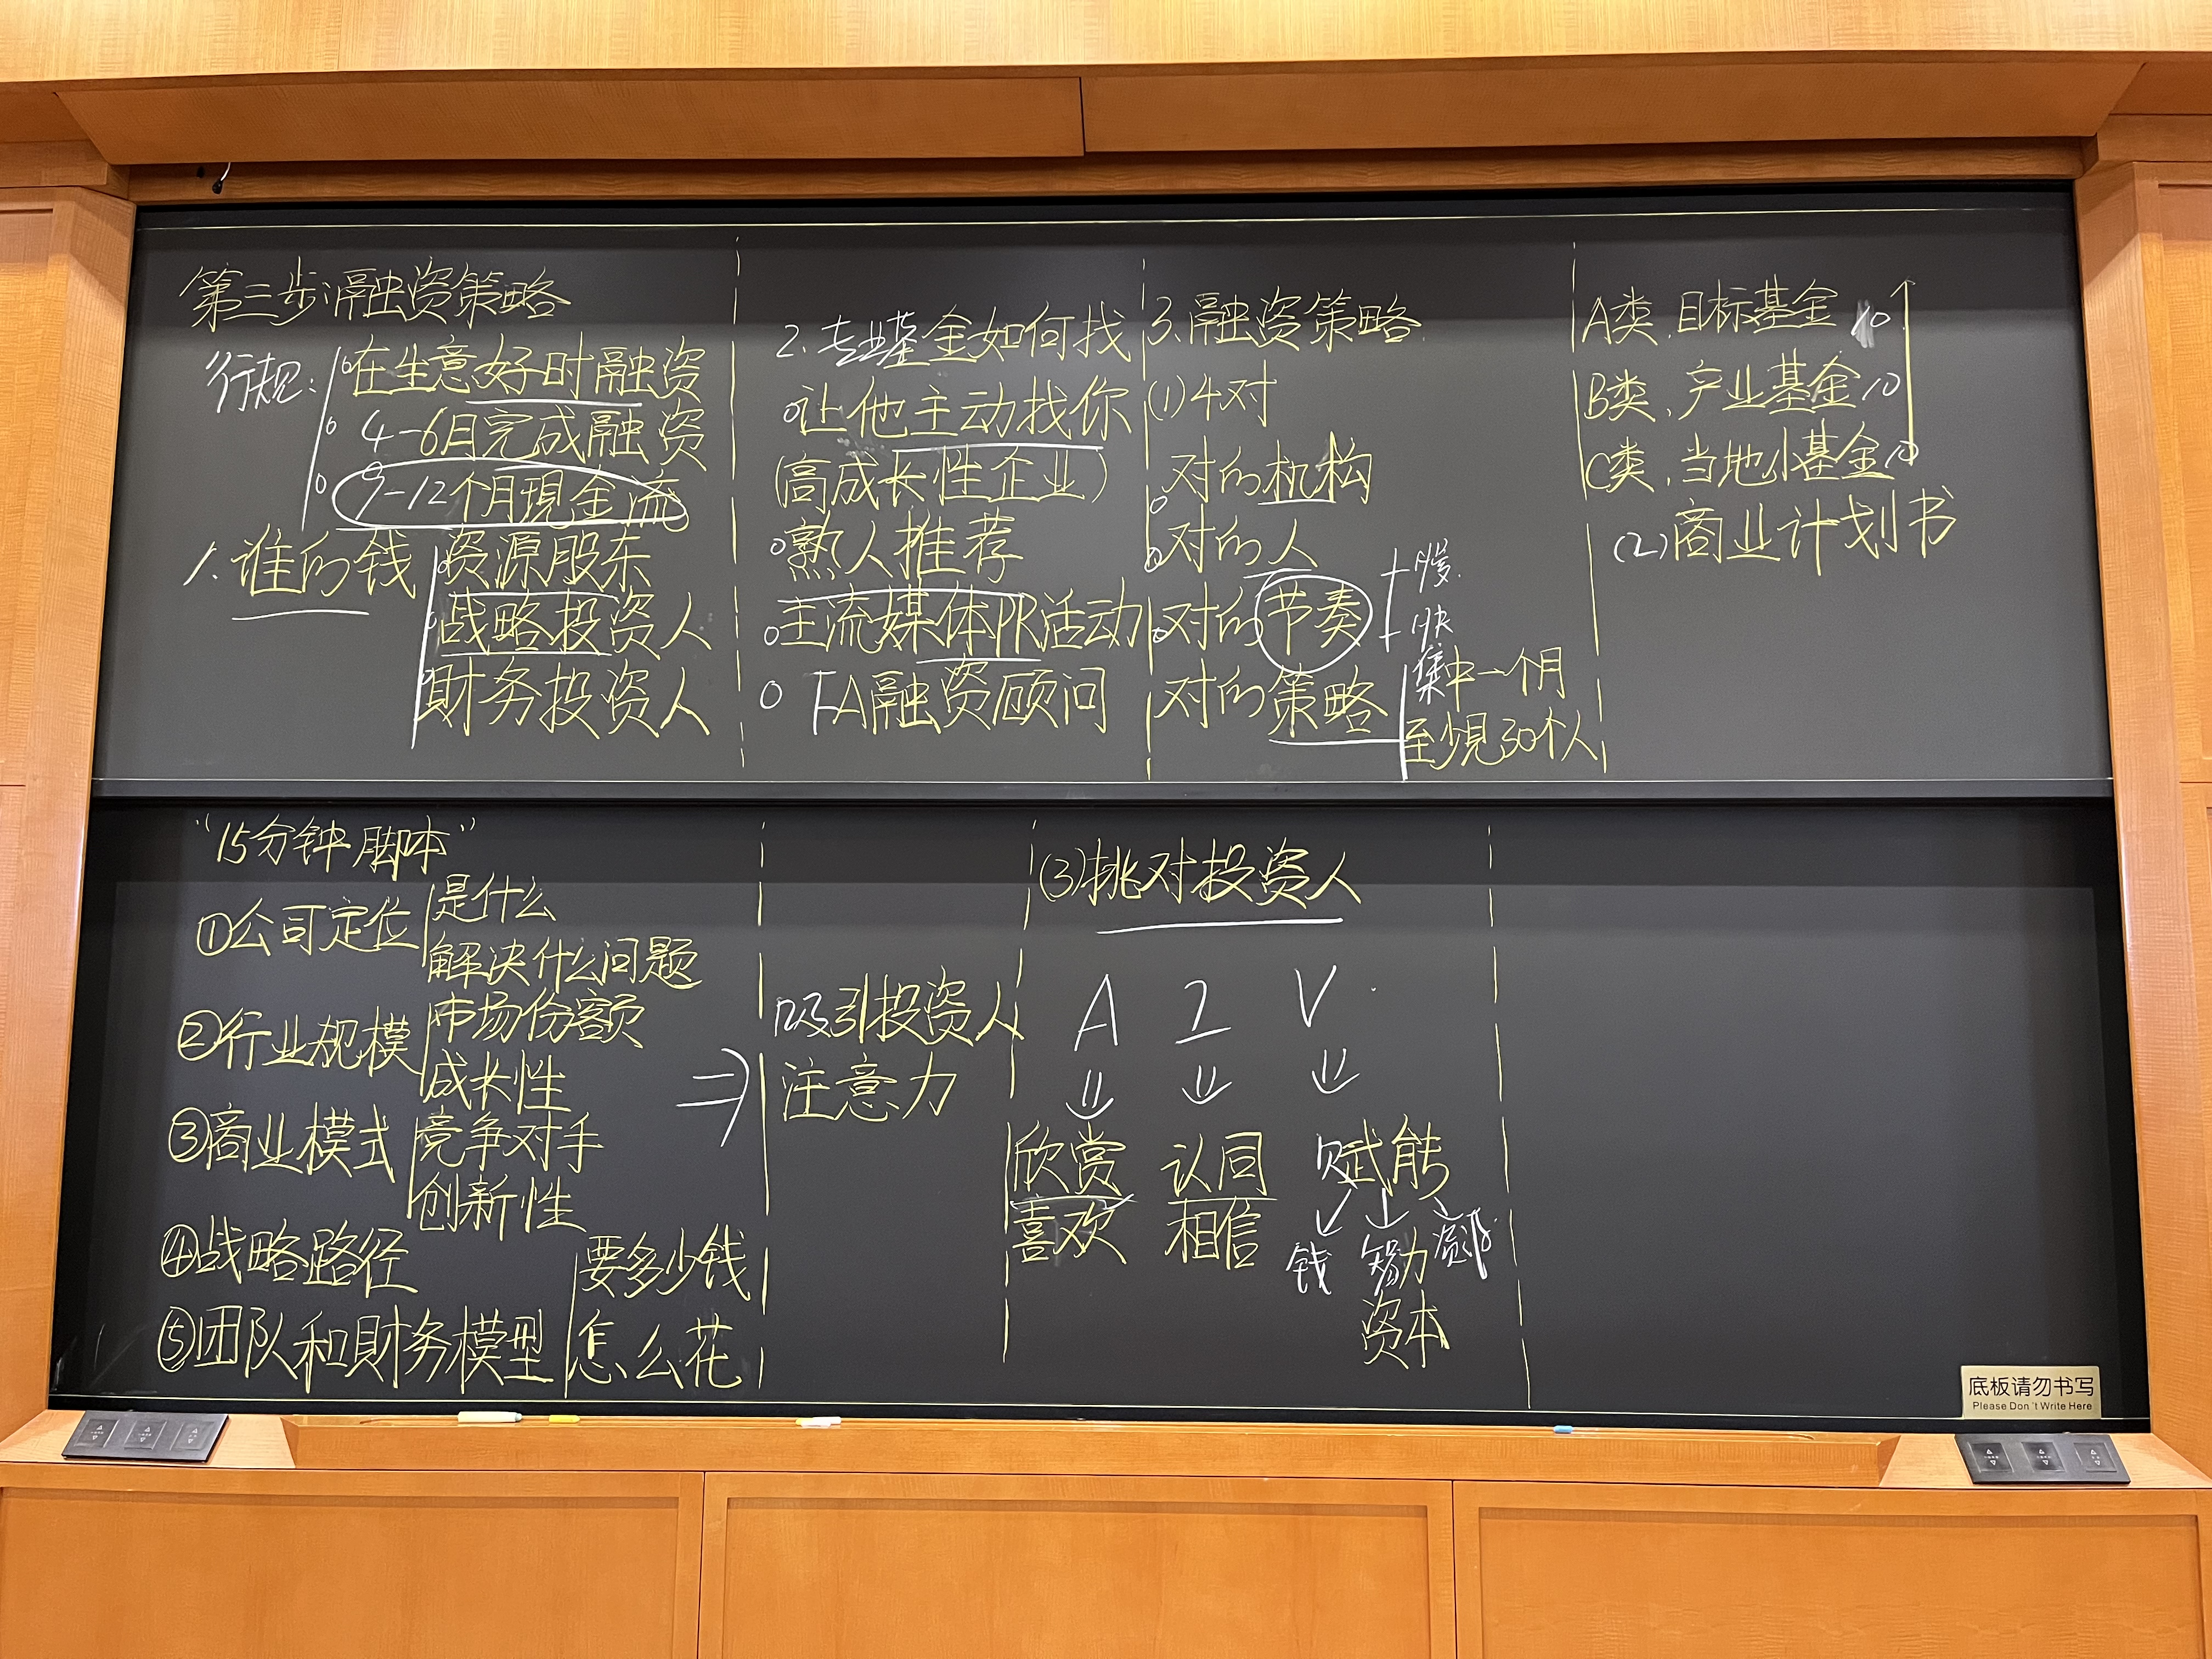 第三步:融资策略
行规:
在生意好时融资
4-6月完成融资
9-12个月現金流
1.谁的钱
资源股东
战略投资人
財务投资人
2.专业基金如何找
让他主动找你
(高成长性企业)
熟人推荐
主流媒体PR活动
FA融资顾问
3.融资策略
(1)4对
对的机构
对的人
对的节奏
慢
快
对的策略
集中一个月
至少見30个人
A类、目标基金 10
B类、产业基金 10
C类、当地小基金 10
(2)商业计划书
"15分钟脚本"
①公司定位
是什么
解决什么问题
②行业规模
市场份额
成长性
③商业模式
竞争对手
创新性
④战略路径
⑤团队和財务模型
要多少钱
怎么花
吸引投资人
注意力
(3)挑对投资人
A I V
欣赏 认同 赋能
喜欢 相信
钱 智力 资源
资本
底板请勿书写
Please Don't Write Here